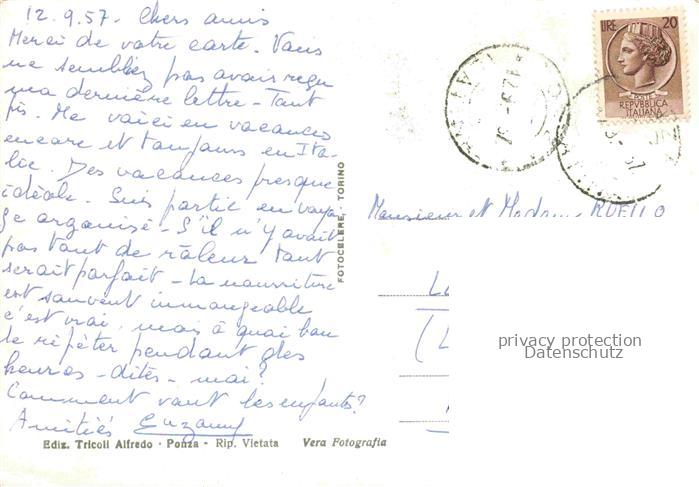 12.9.57. Chers amis
Merci de votre carte. Vous
ne semblez pas avoir reçu
ma dernière lettre - Tant
pis. Me voici en vacances
encore et toujours en Ita-
lie. Des vacances presque
idéales. Suis partie en voya
ge organisé - S'il n'y avait
pas tant de râleurs tout
serait parfait - La nourriture
est souvent immangeable
c'est vrai, mais à quoi bon
le répéter pendant des
heures - dites - moi?
Comment vont les enfants?
Amitiés
Ediz. Tricoli Alfredo · Ponza - Rip. Vietata Vera Fotografia
FOTOCELERE, - TORINO
LIRE 20
POSTE
REPVBBLICA
ITALIANA
Monsieur et Madame RUELLO
privacy protection
Datenschutz